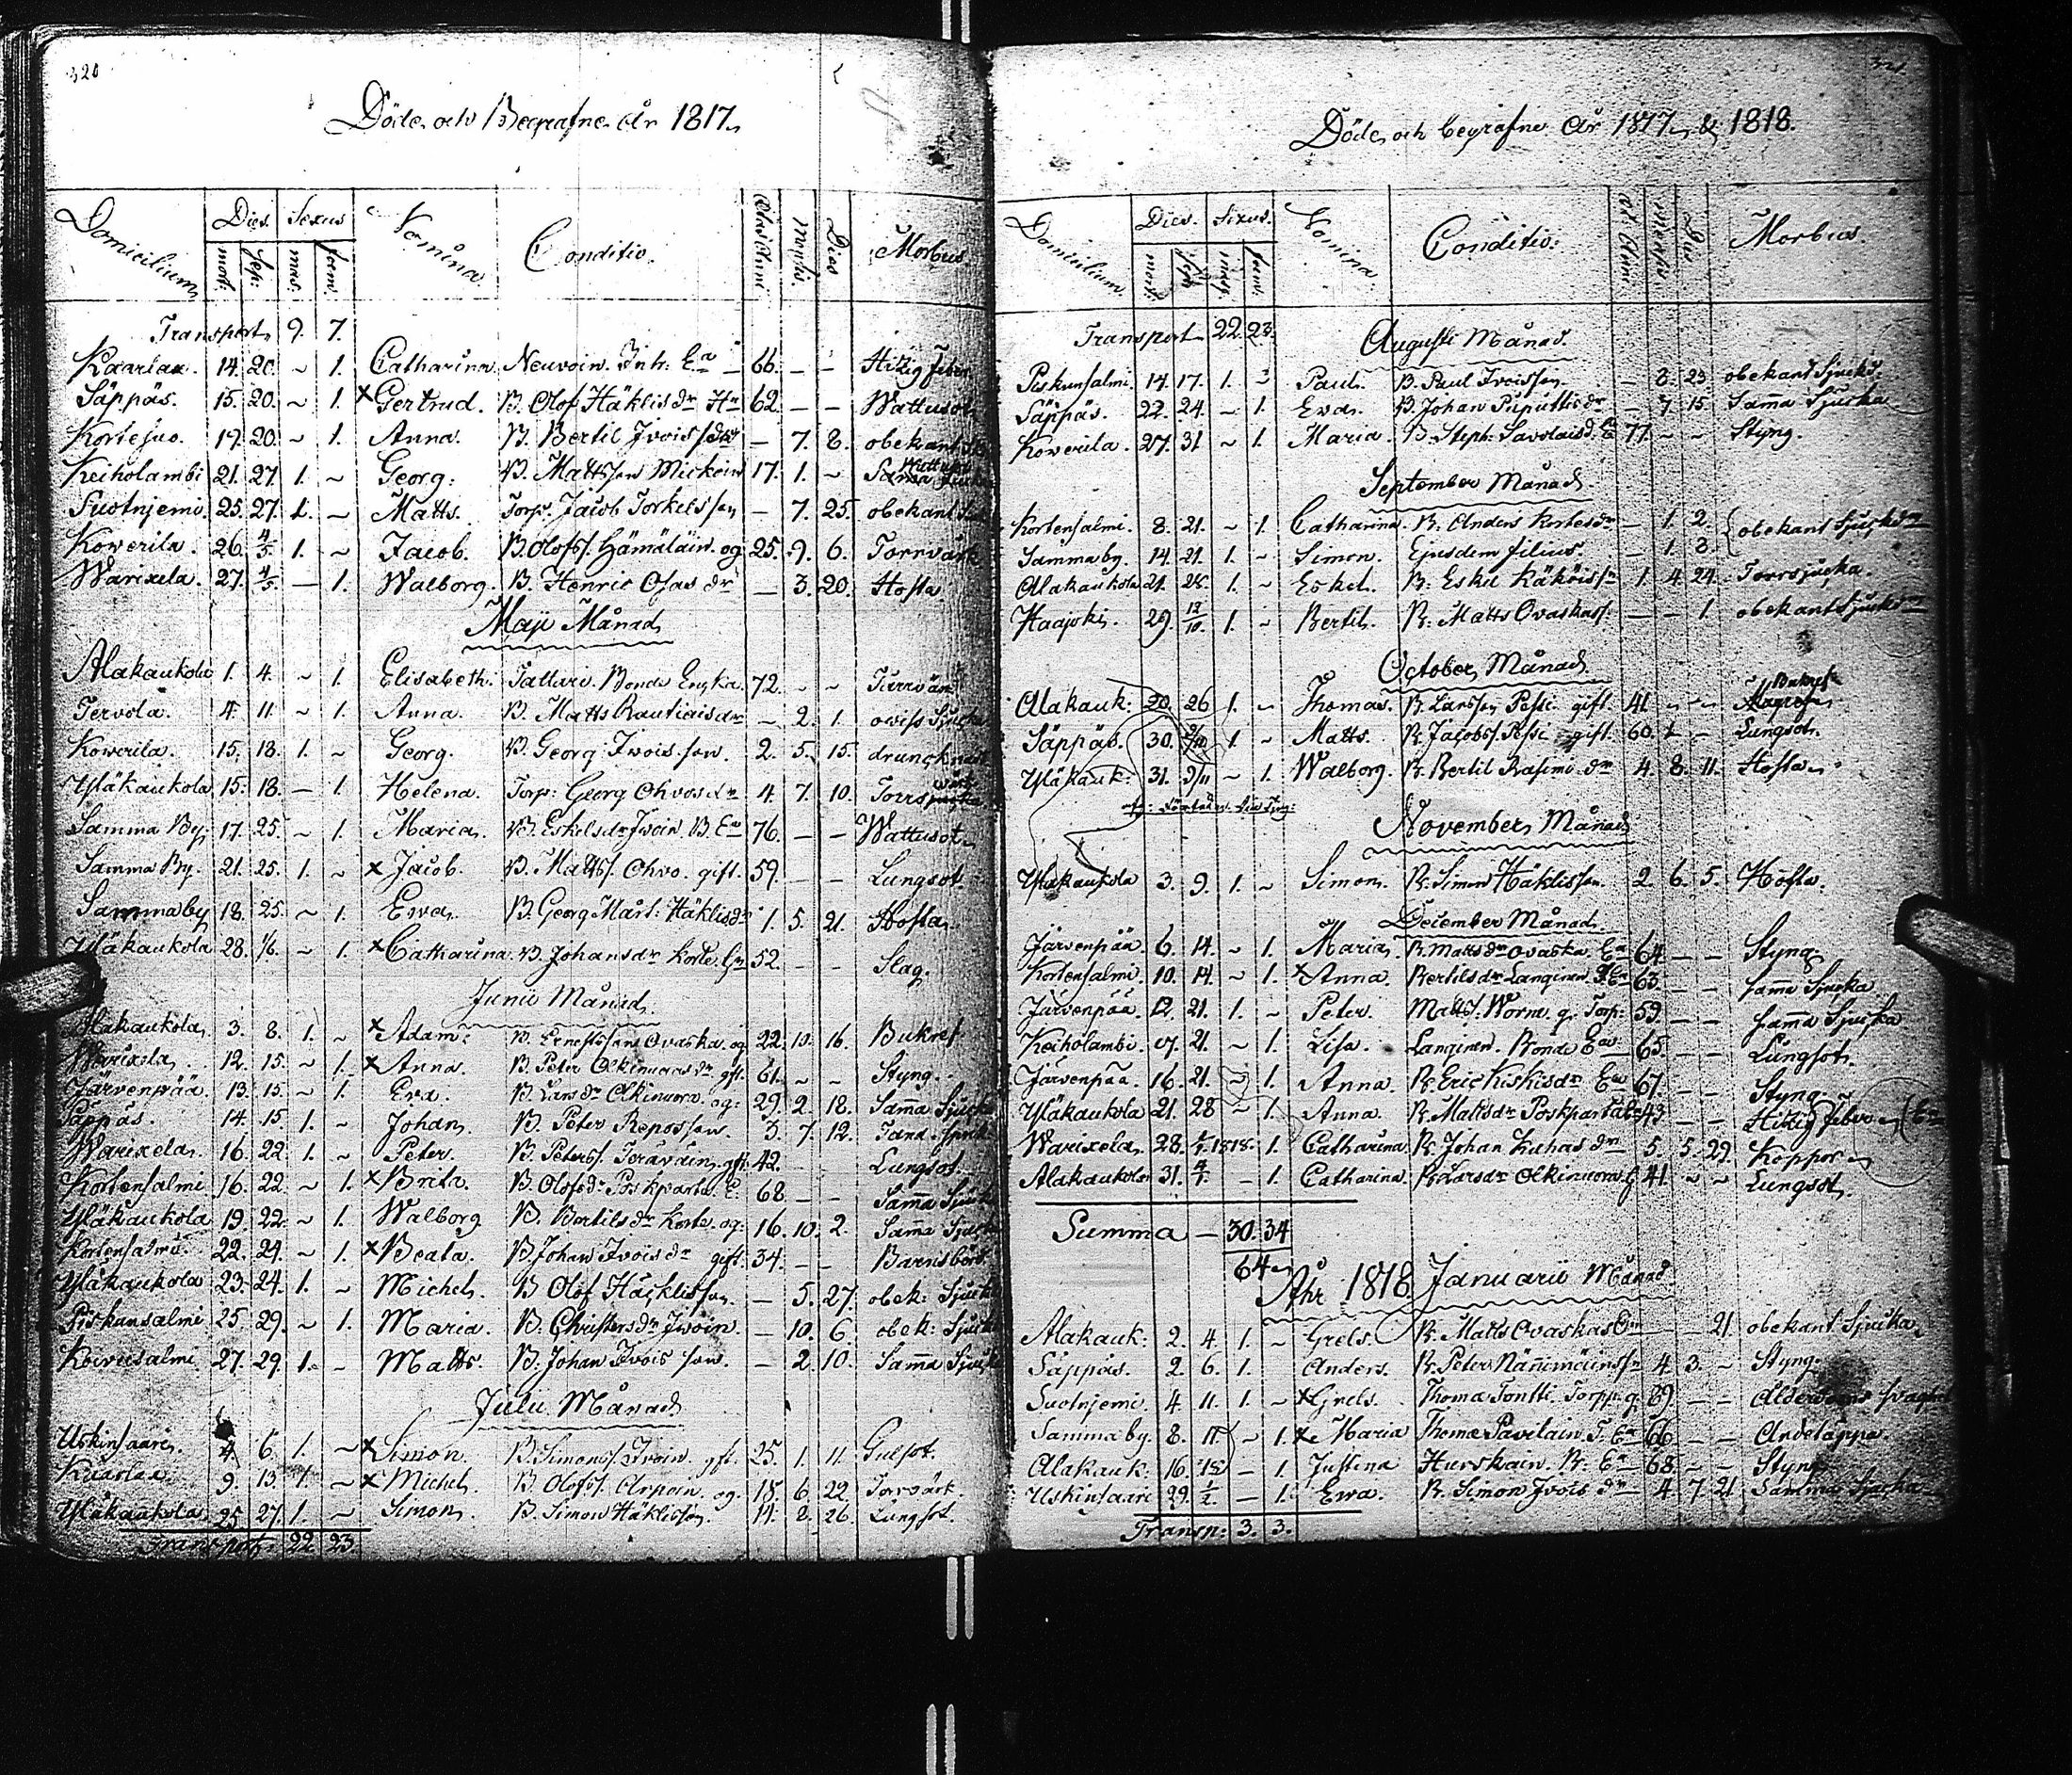 320
Döde och Begrafne år 1817.
Domicilium Dies Sexus Nomina Conditio. Morbus
mort: sep: mas. fœm. Mensis. Dies
Transport 9. 7.
Kaarlax. 14. 20. ~ 1. Catharina Neuvoin. Inh: Ea 66. – – Hitzig feber
Säppäs. 15. 20. ~ 1. x Gertrud. B. Olof Häklis dr 62. – – Wattusot
Kortejus. 19. 20. ~ 1. Anna. B. Bertil Ivois – 7. 8. obekant
Keiholambi 21. 27. 1. ~ Georg: B. Mattsson Mickoin 17. 1. ~
Suotnjemi. 25. 27. 1. ~ Matts. Torp: Jacob Torkelsson – 7. 25. obekant
Kowerila. 26. 4/5 1. ~ Jacob. B. Olofss. Hämäläin. og 25. 9. 6. Torrvärk
Warixela. 27. 4/5. – 1. Walborg. B. Henric Osas dr – 3. 20. Hosta
Maji Månad
Alakaukola 1. 4. ~ 1. Elisabeth. Tattari. Bonde Enka. 72. ~ ~
Tervola. 4. 11. ~ 1. Anna. B. Matts Rautiais dr ~ 2. 1. owiss Sjucka
Kowerila. 15. 18. 1. ~ Georg. B. Georg Ivois son. 2. 5. 15. druncknat
Yläkaukola 15. 18. – 1. Helena. Torp: Georg Ohvos dr 4. 7. 10.
Samma By. 17. 25. ~ 1. Maria. B. Eskelsdr Ivoin. B. Ea 76. – – Wattusot
Samma By. 21. 25. 1. ~ x Jacob. B. Mattss. Ohvo. gift. 59. – – Lungsot.
Samma by 18. 25. ~ 1. Ewa. B. Georg Mårt: Häklis dr 1. 5. 21. Hosta.
Yläkaukola 28. 1/6. ~ 1. x Catharina B. Johansdr Korte. 52. – – Slag.
Junii Månad.
Alakaukola 3. 8. 1. ~ x Adam: B. Ernestsson Ovaska. og 22. 10. 16. Bukref
Warixela 12. 15. ~ 1. x Anna. B. Peter Olkinuoras dr. gft. 61. ~ ~ Styng.
Järvenpää. 13. 15. ~ 1. Eva. B. Lars dr Olkinuora. og: 29. 2. 18. Sam̄a Sjucka
Säppäs. 14. 15. 1. ~ Johan. B. Peter Repos son. 3. 7. 12.
Warixela. 16. 22. 1. ~ Peter. B. Peterss. Teräväin gft. 42. Lungsot.
Kortensalmi 16. 22. ~ 1. x Brita. B. Olofsdr Poskparta. E. 68. – – Sam̄a Sjucka
Yläkaukola 19. 22. ~ 1. Walborg B. Bertilsdr Korte. og. 16. 10. 2. Sam̄a Sjucka
Kortensalmi. 22. 24. ~ 1. x Beata. B. Johan Ivois dr gift. 34. – – Barnsbörd
Yläkaukola 23. 24. 1. ~ Michel. B Olof Häcklisson. – 5. 27. obek: Sjucka
Piskunsalmi 25. 29. ~ 1. Maria. B. Christersdr Ivoin. – 10. 6. obek: Sjucka
Koivusalmi. 27. 29. 1. ~ Matts. B. Johan Ivois son. – 2. 10. Sam̄a Sjucka
Julii Månad
Uskinsaari. 4. 6. 1. ~ x Simon. B. Simonss. Ivoin. gft. 25. 1. 11. Gulsot.
Kaarlax. 9. 13. 1. ~ x Michel. B. Olofss. Arpoin. og. 18. 6. 22. Torrvärk.
Yläkaukola 25. 27. 1. ~ Simon. B. Simon Häklisson. 11. 2. 26. Lungsot.
Transport 22 23
321
Döde och begrafne År 1817 & 1818.
Domicilium. Dies. Sexus. Nomina Conditio: Morbus.
Transport 22. 23. Augusti Månad.
Piskunsalmi. 14. 17. 1. ~ Paul. B. Paul Ivoisson. – 8. 23. obekant Sjucka.
Säppäs. 22. 24. ~ 1. Eva. B. Johan Puputtis dr – 7. 15. Sam̄a Sjucka
Kowerila. 27. 31 ~ 1. Maria. B. Steph: Savolaisd. Ea 77. ~ ~ Styng.
September Månad
Kortensalmi. 8. 21. ~ 1. Catharina. B. Anders Kortes dr – 1. 2. { obekant Sjuckdom
Samma by. 14. 21. 1. ~ Simon. Ejusdem filius. – 1. 8.
Alakaukola 21. 28. 1. ~ Eskel. B: Eskel Käköisson 1. 4. 24. Torrsjucka.
Haajoki. 29. 12/10. 1. ~ Bertil. B: Matts Ovaskass: – – 1. obekant Sjuckdom
October Månad
Alakauk: 20. 26 1. ~ Thomas. B. Larsson Pessi gift. 41. ~ ~ Bukref
Säppäs. 30. 1. ~ Matts. B. Jacobss. Pessi gift. 60. 1. – Lungsot.
Yläkauk: 31. 9/11 ~ 1. Walborg. B. Bertil Rasimi. dr 4. 8. 11. Hosta
November Månad
Yläkaukola 3. 9. 1. ~ Simon. B. Simon Häklisson. 2. 6. 5. Hosta.
December Månad.
Järvenpää 6. 14. ~ 1. Maria. B. Mattsdr Ovaska. Ea 64. – – Styng
Kortensalmi. 10. 14. ~ 1. x Anna. Bertilsdr Langinen. 63. – – sam̄a Sjucka
Järvenpää. 12. 21. 1. ~ Peter. Mattss: Worna g. Torp: 59 – – sam̄a Sjucka
Keiholambi. 17. 21. ~ 1. Lisa. Langinen. Bonde Ea 65. – – Lungsot.
Järvenpää. 16. 21. ~ 1. Anna. B. Eric Kiskis dr Ea 67. – – Styng
Yläkaukola 21. 28 ~ 1. Anna. B. Mattsdr Poskparta 43 – – Hitzig feber
Warixela. 28. 1818. 1. Catharina. B. Johan Kuhas dr 5. 5. 29. Koppor
Alakaukola 31. 4/1. – 1. Catharina. B. Larsdr Olkinuora. g 41. ~ ~ Lungsot.
Summa – 30. 34
64
Åhr 1818 Januarii Månad.
Alakauk: 2. 4. 1. ~ Grels. B. Matts Ovaskas – 21. obekant Sjucka.
Säppäs. 2. 6. 1. Anders. B. Peter Nän̄imäinss 4 3. ~ Styng.
Suotnjemi. 4. 11. 1. ~ x Grels. Thoma Tontti. Torpp. g. 89. – – Ålderdoms svaghet
Samma by. 8. 11. ~ 1. x Maria Thomæ Pavilain. T. Ea 66 – – Andetäppa
Alakauk: 16. 18 – 1. Justina Hurskain. B: Ea 68. – – Styng
Uskinsaari 29. 1/2. – 1. Ewa. B. Simon Ivois dr 4 7 21 Samma Sjucka
Transp: 3. 3.